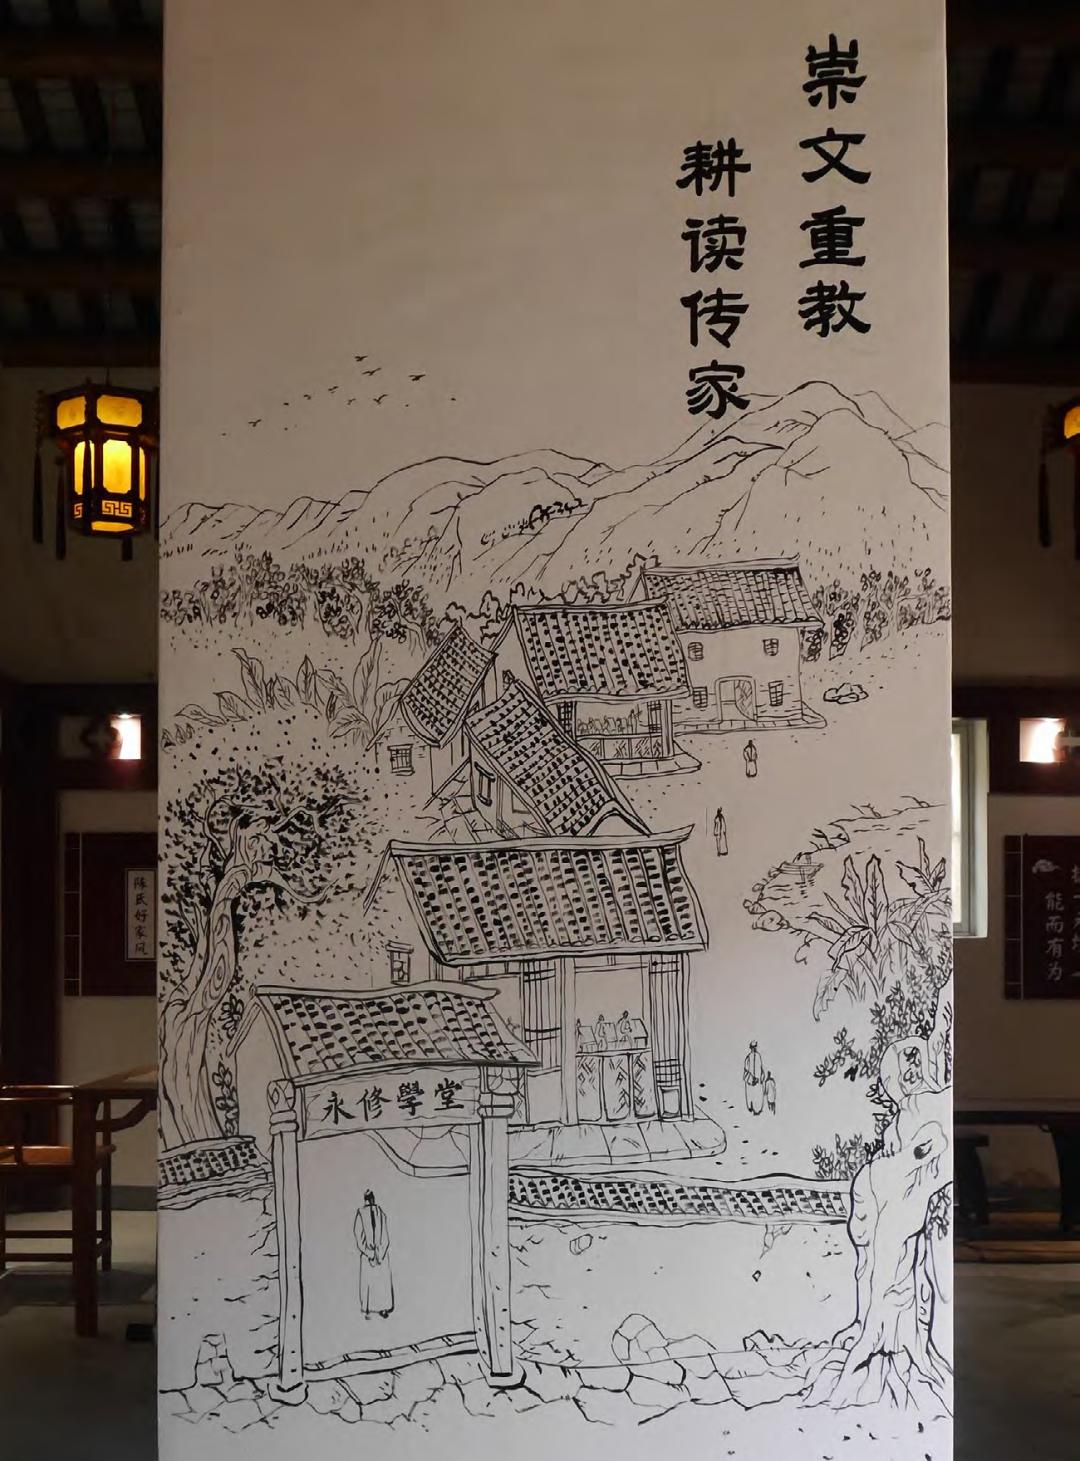 崇文重教
耕读传家
永修學堂
陈氏好家风
能而有为